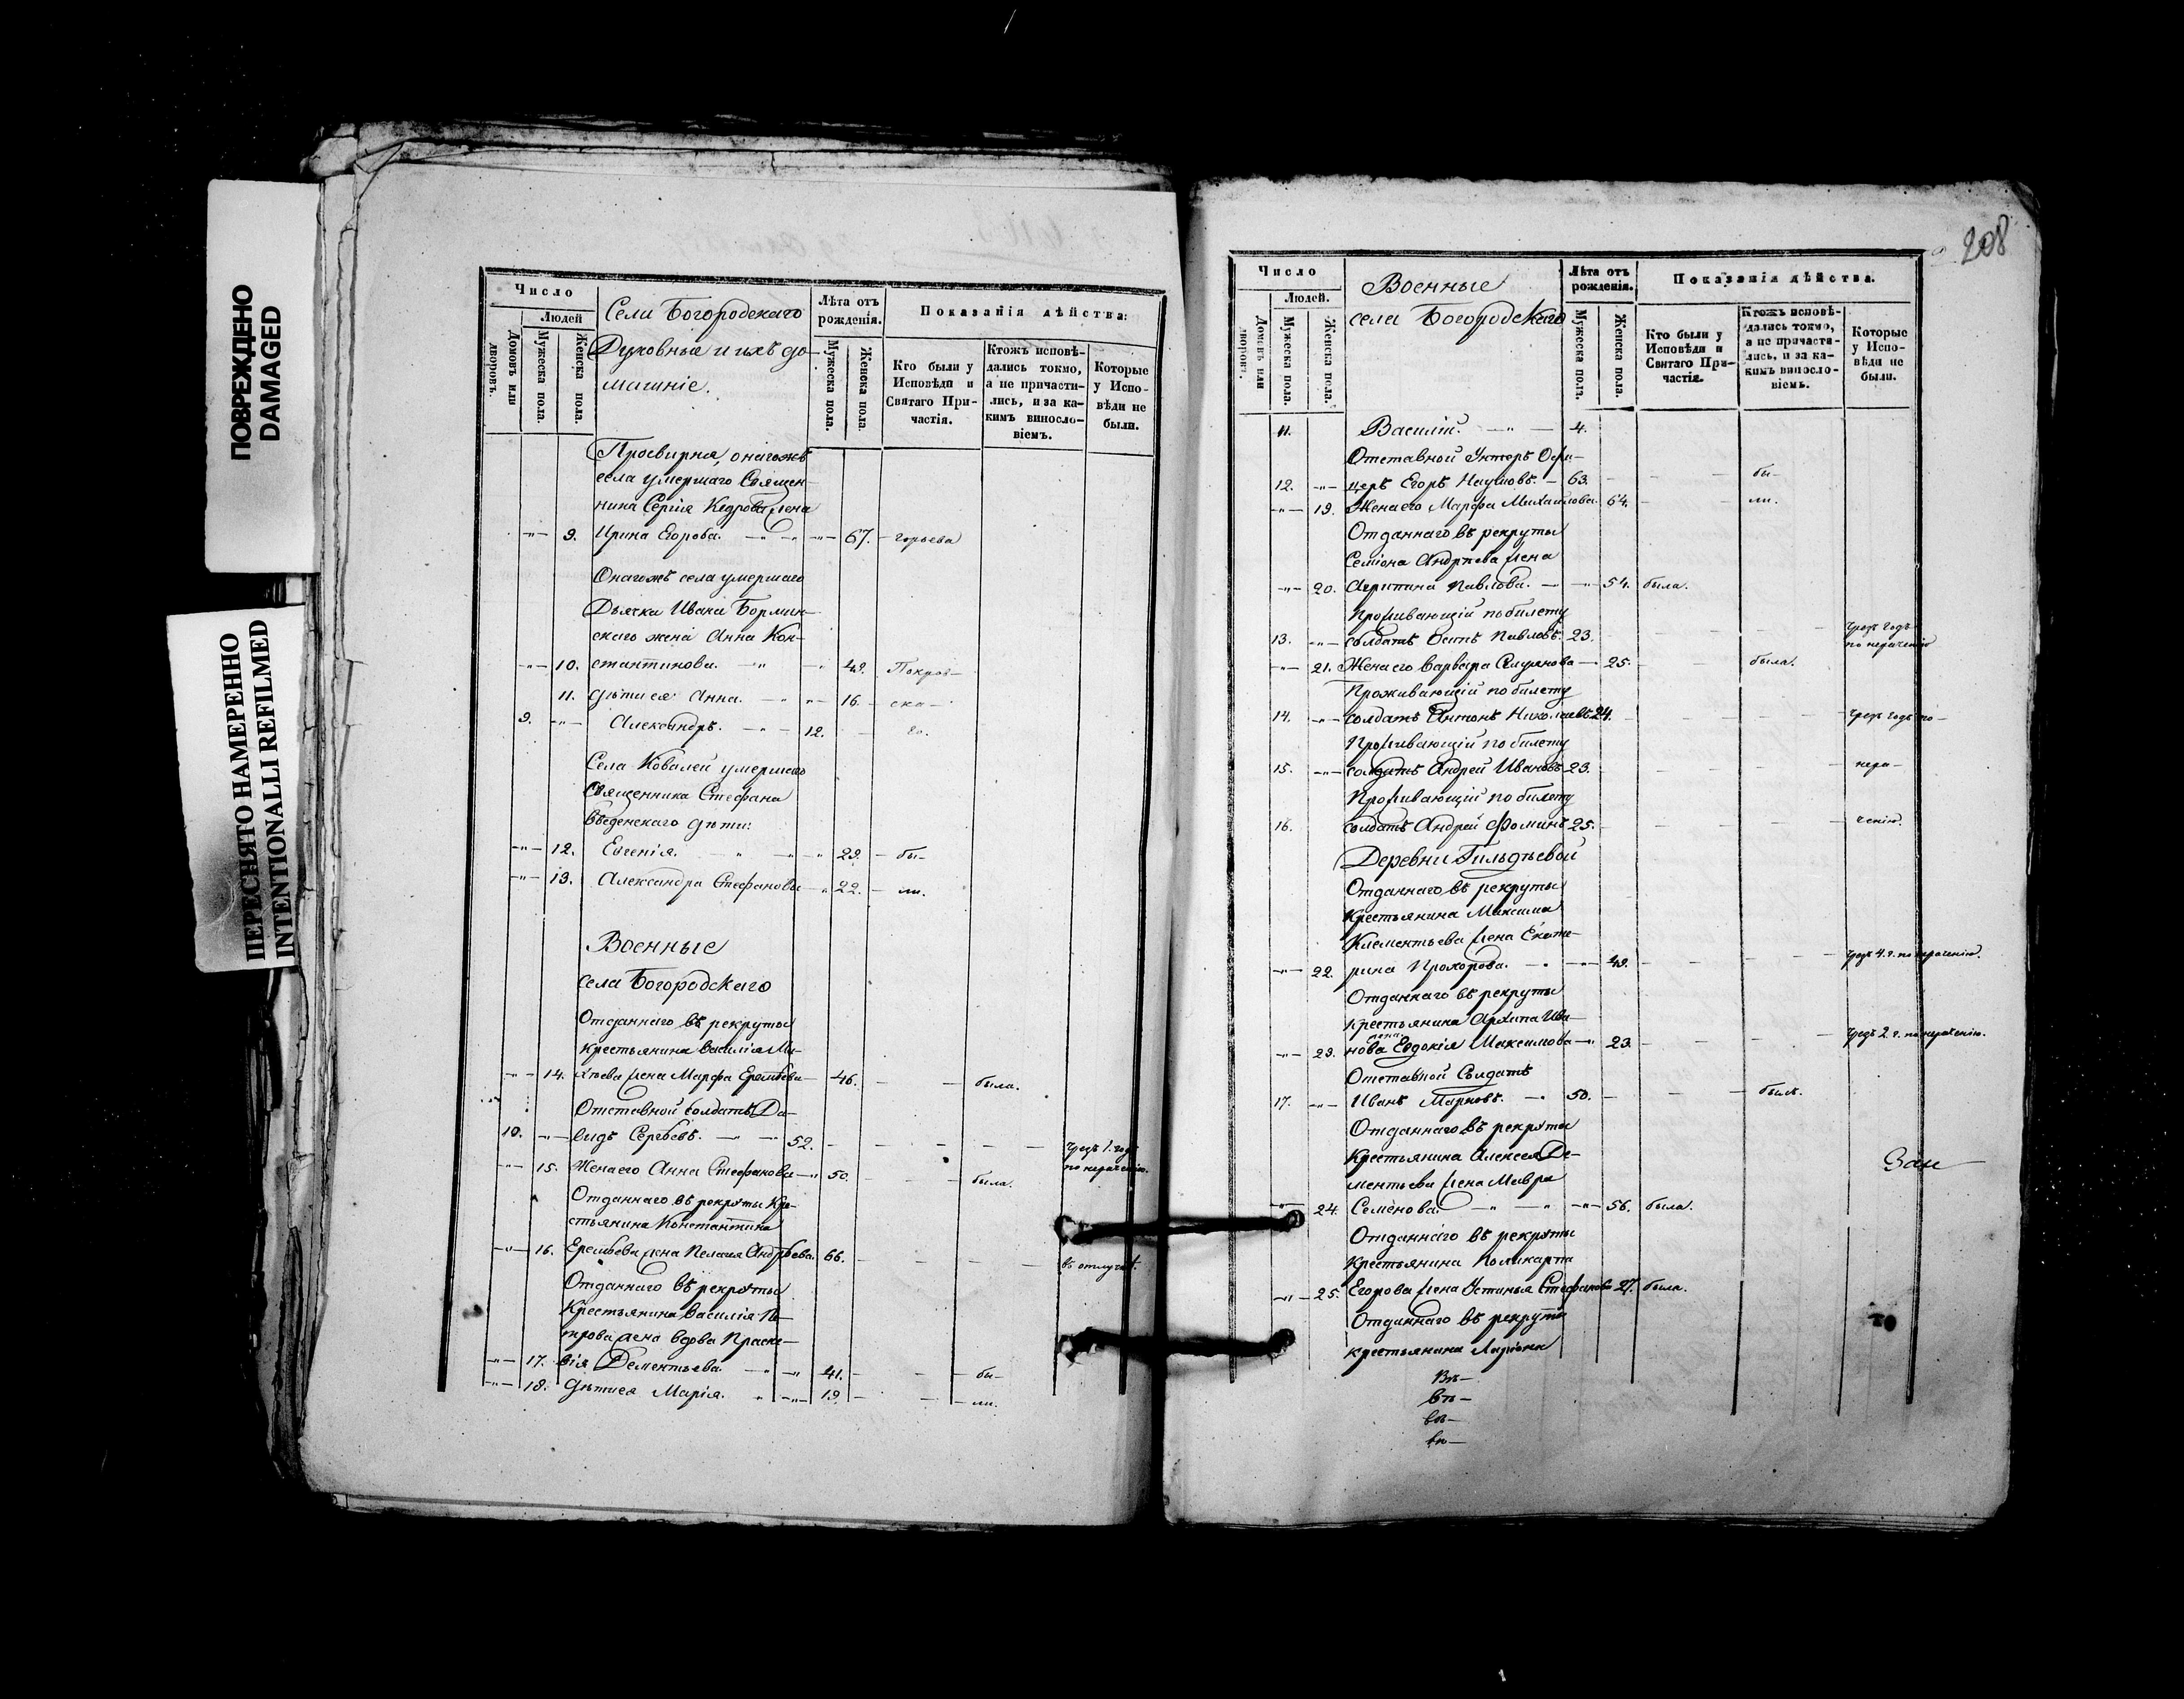 ПОВРЕЖДЕНО
DAMAGED
ПЕРЕСНЯТО НАМЕРЕННО
INTENTIONALLI REFILMED
Число
Людей
Домовъ или дворовъ.
Мужеска пола.
Женска пола.
Села Богородскаго
Духовные и ихъ до-
машніе.
Лѣта отъ рожденія.
Мужеска пола.
Женска пола.
Показанія дѣйства:
Кто были у Исповѣди и Святаго При-частія.
Ктожъ исповѣ-дались токмо, а не причасти-лись, и за ка-кимъ винословіемъ.
Которые у Испо-вѣди не были.
Просвирня, онагожъ
села умершаго Священ-
ника Сергія Кедрова жена
9. Ирина Егорова. 67.
Онагожъ села умершаго
Дьячка Ивана Бормин-
скаго жена Анна Кон-
10. стантинова. 42. Покров-
11. Дѣти ея: Анна. 16. ска-
9. Александръ. 12. го.
Села Ковалей умершаго
Священника Стефана
Введенскаго дѣти:
12. Евгенія. 29. бы-
13. Александра Стефанова 22. ли.
Военные
села Богородскаго
Отданнаго въ рекруты
крестьянина Василія Ми-
14. хѣева жена Марфа Еремѣева 46. была.
Отставной солдатъ Да-
10. видъ Сергѣевъ. 52. чрезъ 1. годъ
по нераченію.
15. Жена его Анна Стефанова 50. была.
Отданнаго въ рекруты Кре-
стьянина Константина
16. Еремѣева жена Пелагія Андрѣева. 66. въ отлучкѣ.
Отданнаго въ рекруты
Крестьянина Василія Пе-
трова жена вдова Праско-
17. вія Дементьева. 41. бы-
18. Дѣти ея Марія. 19. ли.
208
Число
Людей.
Домовъ или дворовъ.
Мужеска пола.
Женска пола.
Военные
села Богородскаго
Лѣта отъ рожденія.
Мужеска пола.
Женска пола.
Показанія дѣйства.
Кто были у Исповѣди и Святаго При-частія.
Ктожъ исповѣ-дались токмо, а не причасти-лись, и за ка-кимъ винословіемъ.
Которые у Испо-вѣди не были.
11. Василій. 4.
Отставной Унтеръ Офи-
12. церъ Егоръ Наумовъ. 63. бы-
19. Жена его Марфа Михайлова. 64. ли.
Отданнаго въ рекруты
Семіона Андрѣева жена
20. Агрипина Павлова. 54. была.
Проживающій по билету
13. солдатъ Осипъ Павловъ. 23. чрезъ годъ
по нераченію
21. Жена его Варвара 25. была.
Проживающій по билету
14. солдатъ Антонъ Николаевъ 24. чрезъ годъ по-
Проживающій по билету
15. солдатъ Андрей Ивановъ 23. нера-
Проживающій по билету
16. солдатъ Андрей Фоминъ 25. ченію.
Деревни Гильдѣевой
Отданнаго въ рекруты
Крестьянина Максима
Клементьева жена Екате-
22. рина Прохорова. 49. чрезъ 4. г. по нераченію.
Отданнаго въ рекруты
крестьянина Архипа Ива-
жена
23. нова Евдокія Максимова 23. чрезъ 2. г. по нераченію.
Отставной Солдатъ
17. Иванъ Марковъ. 50. былъ.
Отданнаго въ рекруты
Крестьянина Алексея Де-
ментьева жена Мавра
24. Семенова. 56. была.
Отданнаго въ рекруты
Крестьянина Поликарпа
25. Егорова жена Устинья Стефанова 27. была.
Отданнаго въ рекруты
крестьянина Ларіона